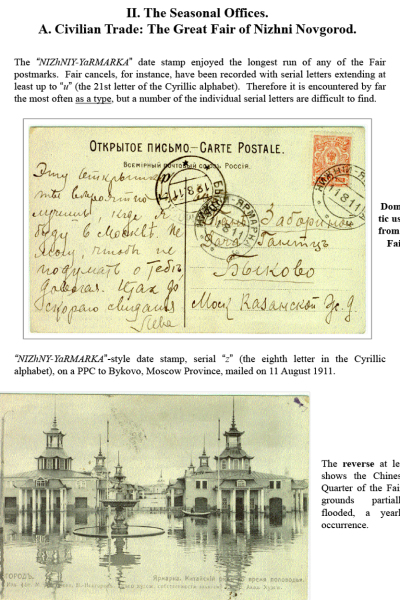 II. The Seasonal Offices.
A. Civilian Trade: The Great Fair of Nizhni Novgorod.
The "NIZhNIY-YaRMARKA" date stamp enjoyed the longest run of any of the Fair
postmarks. Fair cancels, for instance, have been recorded with serial letters extending at
least up to "u" (the 21st letter of the Cyrillic alphabet). Therefore it is encountered by far
the most often as a type, but a number of the individual serial letters are difficult to find.
ОТКРЫТОЕ ПИСЬМО.—CARTE POSTALE.
Всемірный почтовый союзъ. Россія.
Эту открытку
ты вероятно
получишь, когда я
буду в Москвѣ. Не
могу, чтобы не
подумать о тебѣ
дорогая. Итакъ до
скораго свиданія
Забориной
Дача
Быково
Моск. Казанской ж. д.
11.8.11
Dom
tic us
from
Fai
"NIZhNY-YaRMARKA"-style date stamp, serial "z" (the eighth letter in the Cyrillic
alphabet), on a PPC to Bykovo, Moscow Province, mailed on 11 August 1911.
The reverse at le
shows the Chines
Quarter of the Fai
grounds partiall
flooded, a yearl
occurrence.
ГОРОДЪ.
Ярмарка. Китайскій
время половодья.